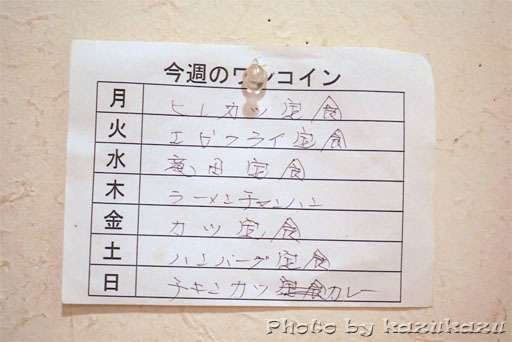 今週のワンコイン
月 ヒレカツ定食
火 エビフライ定食
水 定食
木 ラーメンチャーハン
金 カツ定食
土 ハンバーグ定食
日 チキンカツ定食カレー
Photo by kazukazu